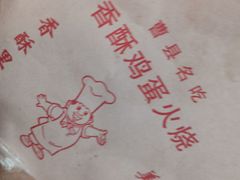 曹县名吃
香酥鸡蛋火烧
香酥